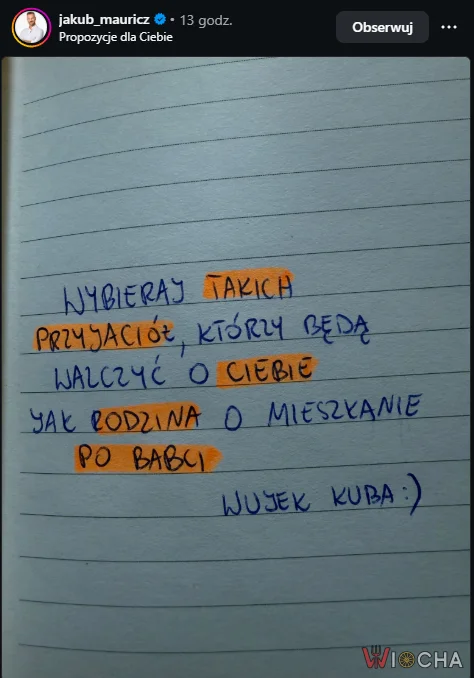 jakub_mauricz • 13 godz.
Propozycje dla Ciebie
Obserwuj
WYBIERAJ TAKICH
PRZYJACIÓŁ, KTÓRZY BĘDĄ
WALCZYĆ O CIEBIE
JAK RODZINA O MIESZKANIE
PO BABCI
WUJEK KUBA :)
WIOCHA